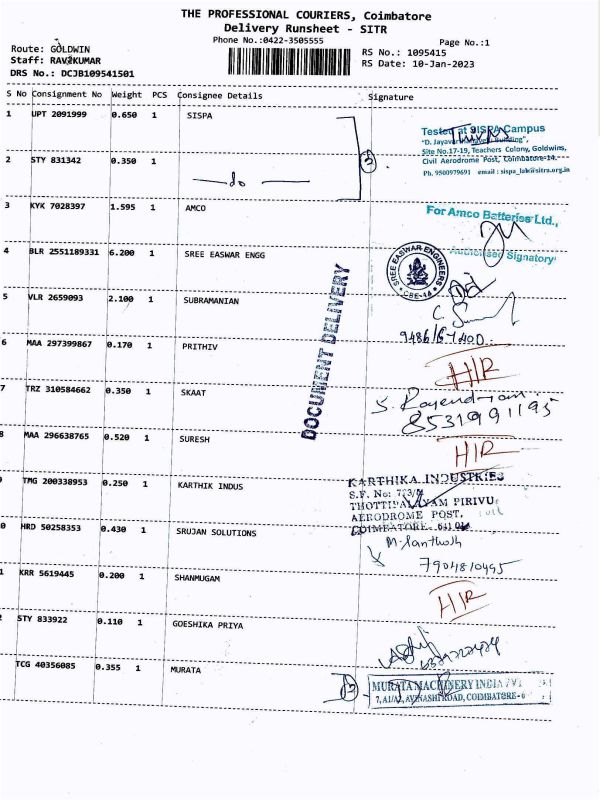 THE PROFESSIONAL COURIERS, Coimbatore
Delivery Runsheet - SITR
Phone No.:0422-3505555
Page No.:1
Route: GOLDWIN
RS No.: 1095415
Staff: RAVIKUMAR
RS Date: 10-Jan-2023
DRS No.: DCJB109541501
S No Consignment No Weight PCS Consignee Details Signature
1 UPT 2091999 0.650 1 SISPA
Tested at SISPA Campus
"D. Building",
Site No.17-19, Teachers Colony, Goldwins,
Civil Aerodrome Post, Coimbatore-14.
Ph. 9500979691 email : sispa_lab@sitra.org.in
2 STY 831342 0.350 1 do
3 KYK 7028397 1.595 1 AMCO
For Amco Batteries Ltd.,
Authorised Signatory
4 BLR 2551189331 6.200 1 SREE EASWAR ENGG
SREE EASWAR ENGINEERS
CBE-14
5 VLR 2659093 2.100 1 SUBRAMANIAN
DOCUMENT DELIVERY
6 MAA 297399867 0.170 1 PRITHIV
H/R
7 TRZ 310584662 0.350 1 SKAAT
S. Rajendran
8531991195
8 MAA 296638765 0.520 1 SURESH
H/R
9 TMG 200338953 0.250 1 KARTHIK INDUS
KARTHIKA INDUSTRIES
S.F. No:
THOTTIPALAYAM PIRIVU
AERODROME POST,
COIMBATORE - 641 014
0 HRD 50258353 0.430 1 SRUJAN SOLUTIONS
M. Santhosh
7904810495
1 KRR 5619445 0.200 1 SHANMUGAM
H/R
2 STY 833922 0.110 1 GOESHIKA PRIYA
TCG 40356085 0.355 1 MURATA
MURATA MACHINERY INDIA PVT
7, A1/A2, AVINASHI ROAD, COIMBATORE - 6